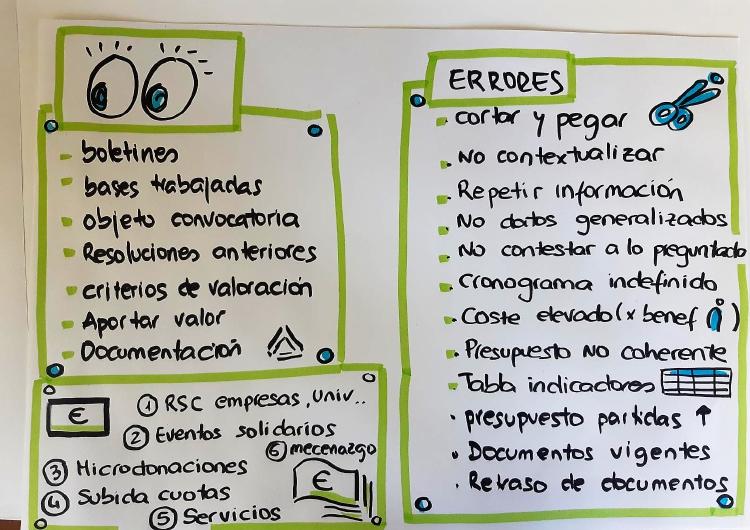 boletines
bases trabajadas
objeto convocatoria
Resoluciones anteriores
criterios de valoración
Aportar valor
Documentación
€
① RSC empresas, univ..
② Eventos solidarios
⑥ mecenazgo
③ Microdonaciones
④ Subida cuotas
€
⑤ Servicios
ERRORES
cortar y pegar
No contextualizar
Repetir información
No datos generalizados
No contestar a lo preguntado
Cronograma indefinido
Coste elevado (x benef )
Presupuesto NO coherente
Tabla indicadores
presupuesto partidas ↑
Documentos vigentes
Retraso de documentos